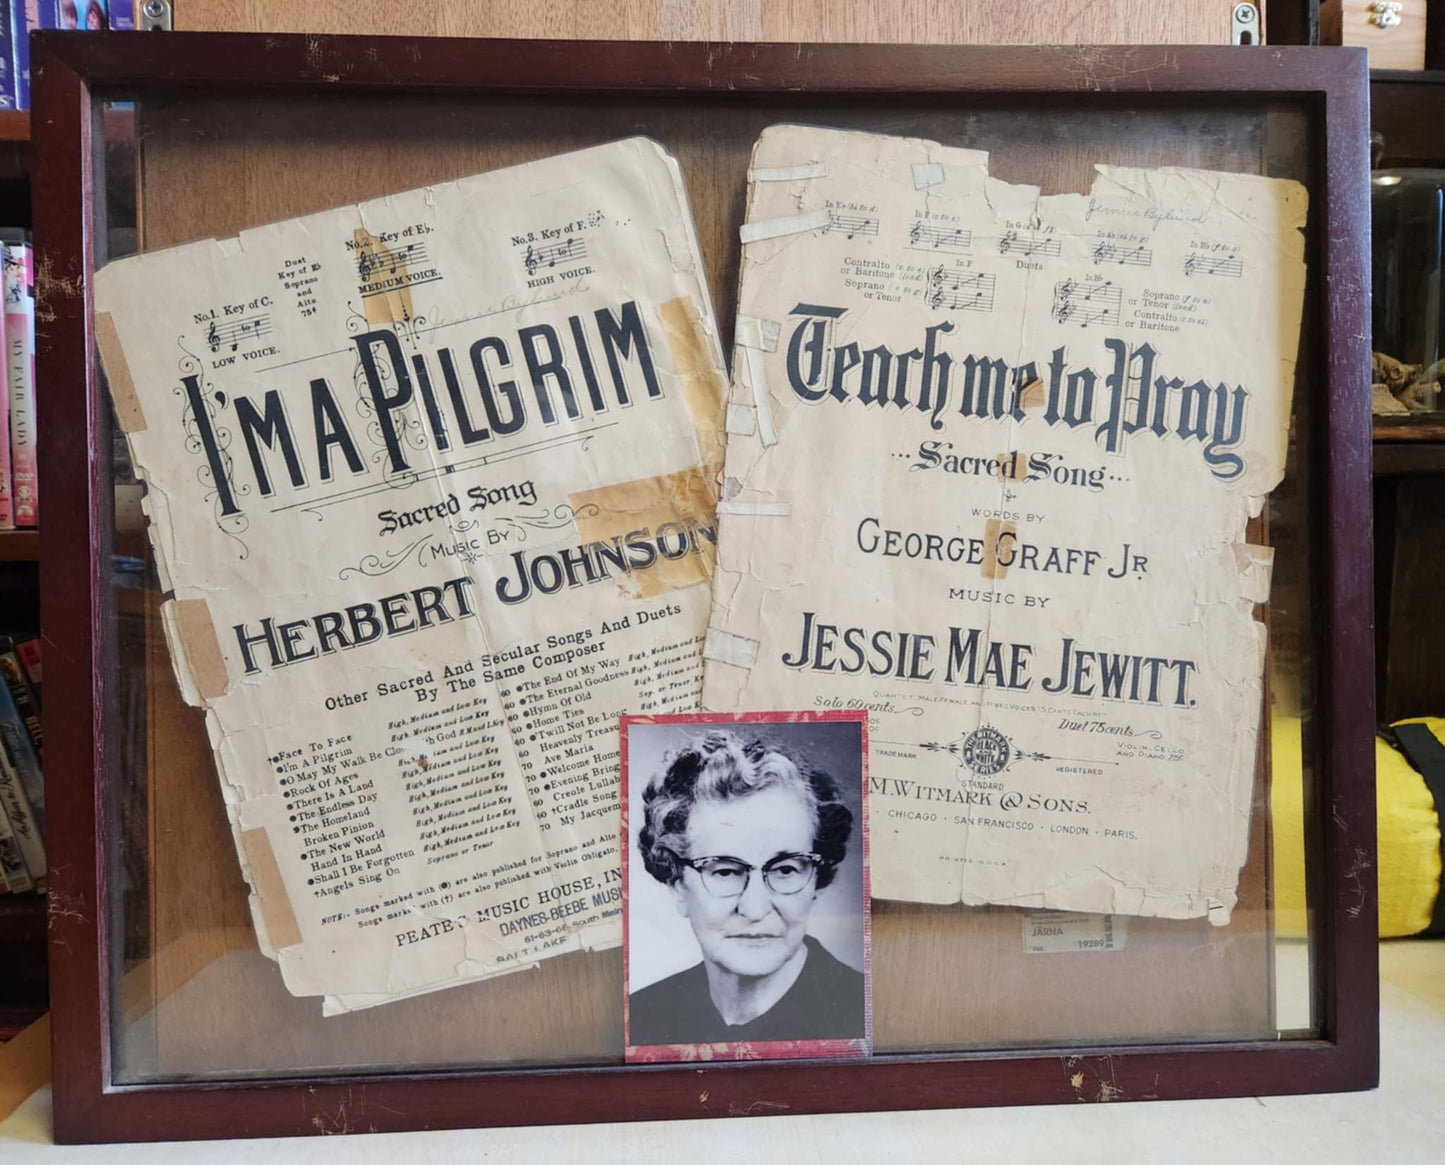 No.1. Key of C.
LOW VOICE.
Duet
Key of E♭
Soprano
and
Alto
75¢
No.2. Key of E♭.
MEDIUM VOICE.
No.3. Key of F.
HIGH VOICE.
Jennie Bylund
I'M A PILGRIM
Sacred Song
MUSIC BY
HERBERT JOHNSON
Other Sacred And Secular Songs And Duets
By The Same Composer
Face To Face
I'm A Pilgrim
O May My Walk Be Close With God
Rock Of Ages
There Is A Land
The Endless Day
The Homeland
Broken Pinion
The New World
Hand In Hand
Shall I Be Forgotten
†Angels Sing On
High, Medium and Low Key
High, Medium and Low Key
High, Medium and Low Key
High, Medium and Low Key
High, Medium and Low Key
High, Medium and Low Key
High, Medium and Low Key
High, Medium and Low Key
Soprano or Tenor
60 The End Of My Way
60 The Eternal Goodness
60 Hymn Of Old
60 Home Ties
60 'Twill Not Be Long
60 Heavenly
70 Ave Maria
70 Welcome Home
70 Evening
60 Creole
60 †Cradle Song
70 My
NOTE:- Songs marked with (●) are also published for Soprano and Alto
Songs marked with (†) are also published with Violin Obligato.
PEATE'S MUSIC HOUSE, IN
DAYNES-BEEBE MUSI
61-63-65 South Main
SALT LAKE
In E♭ (b♭ to d)
In F (c to e)
In G
In A♭ (e♭ to g)
In B♭ (f to a)
Jennie Bylund
Duets
Contralto (c to e)
or Baritone (lead)
Soprano (c to g)
or Tenor
In F
In B♭
Soprano (f to a)
or Tenor (lead)
Contralto
or Baritone
Teach me to Pray
...Sacred Song...
WORDS BY
GEORGE GRAFF JR.
MUSIC BY
JESSIE MAE JEWITT.
QUARTET, MALE, FEMALE, AND MIXED VOICES 15 CENTS EACH NET
Solo 60 cents.
Duet 75 cents.
VIOLIN, CELLO
AND PIANO 75¢
TRADEMARK
M.WITMARK
BLACK
AND
WHITE
SERIES
REGISTERED
STANDARD
M. WITMARK & SONS.
· CHICAGO · SAN FRANCISCO · LONDON · PARIS.
PRINTED IN U.S.A.
JÄRNA
19289
MY FAIR LADY
DVD